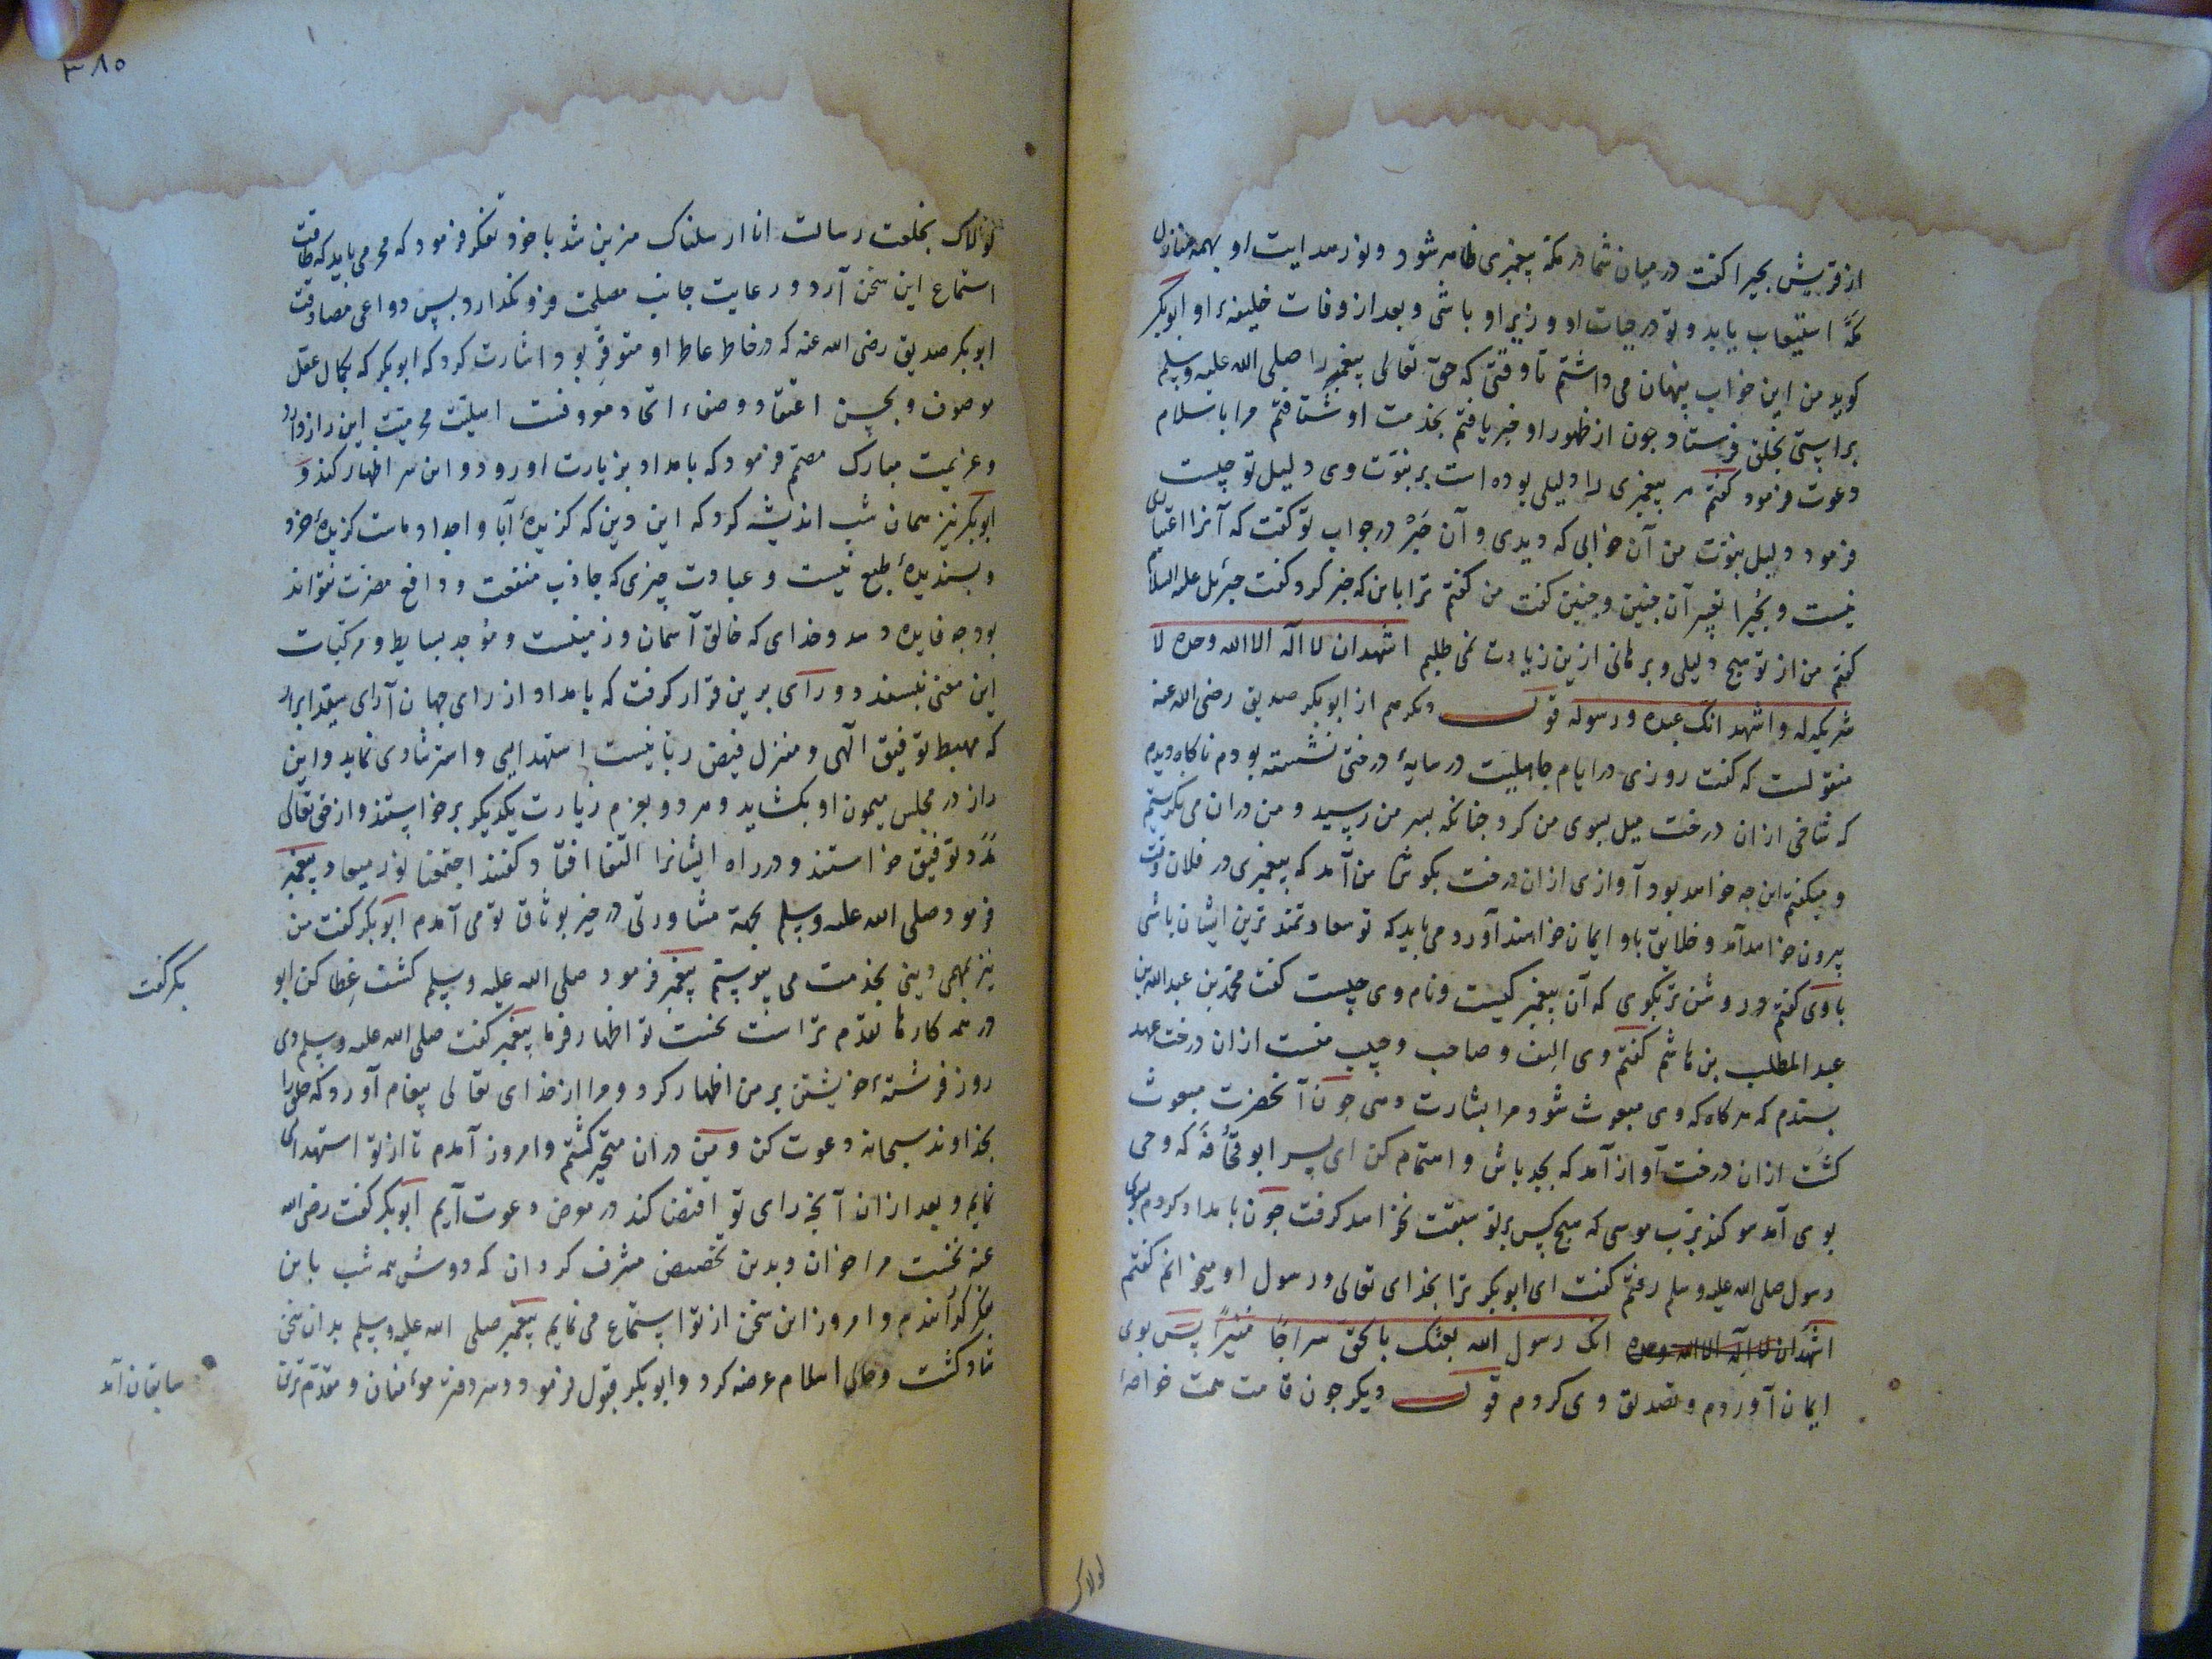 از قریش بحیرا گفت در میان شما در مکه پیغمبری ظاهر شود و نور هدایت او بهمه منازل
مکه استیعاب یابد و تو در حیات او وزیر او باشی و بعد از وفات خلیفهٔ او ابوبکر
گوید من این خواب پنهان می داشتم تا وقتی که حق تعالی پیغمبر را صلی الله علیه وسلم
براستی بخلق فرستاد چون از ظهور او خبر یافتم بخدمت او شتافتم مرا باسلام
دعوت فرمود گفتم هر پیغمبری را دلیلی بوده است بر نبوّت وی دلیل تو چیست
فرمود دلیل نبوّت من آن خوابی که دیدی و آن حَبْر در جواب تو گفت که آنرا اعتباری
نیست و بحیرا تعبیر آن چنین و چنین گفت من گفتم ترا باین که خبر کرد گفت جبرئیل علیه السلام
گفتم من از تو هیچ دلیلی و برهانی ازین زیادت نمی طلبم اشهد ان لا اله الا الله وحده لا
شریک له و اشهد انک عبده و رسوله قولـــ دیگر هم از ابوبکر صدیق رضی الله عنه
منقولست که گفت روزی در ایام جاهلیت در سایهٔ درختی نشسته بودم ناگاه دیدم
که شاخی ازان درخت میل بسوی من کرد چنانکه بسر من رسید و من دران می نگریستم
و میگفتم این چه خواهد بود آوازی ازان درخت بگوش من آمد که پیغمبری در فلان وقت
بیرون خواهد آمد و خلایق باو ایمان خواهند آورد می باید که تو سعادتمندترین ایشان باشی
با وی گفتم روشن تر بگوی که آن پیغمبر کیست و نام وی چیست گفت محمد بن عبدالله بن
عبدالمطلب بن هاشم گفتم وی الیف و صاحب و حبیب منست ازان درخت عهد
بستدم که هرگاه که وی مبعوث شود مرا بشارت دهی چون آنحضرت مبعوث
گشت ازان درخت آواز آمد که بجد باش و اهتمام کن ای پسر ابو قحافه که وحی
بوی آمد سوگند برب موسی که هیچ کس بر تو سبقت نخواهد گرفت چون بامداد کردم بسوی
رسول صلی الله علیه وسلم رفتم گفت ای ابوبکر ترا بخدای تعالی و رسول او میخوانم گفتم
اشهد ان لا اله الا الله وحده انک رسول الله بعثک بالحق سراجًا منیرًا پس بوی
ایمان آوردم و تصدیق وی کردم قولـــ دیگر چون قامت همت خواجهٔ
لولاک
٣٨٥
لولاک بخلعت رسالت انا ارسلناک مزین شد با خود تفکر فرمود که محرمی باید که طاقت
استماع این سخن آرد و رعایت جانب مصلحت فرو نگذارد پس دواعی مصادقت
ابوبکر صدیق رضی الله عنه که در خاطر عاطر او متوفر بود اشارت کرد که ابوبکر که بکمال عقل
موصوف و بحسن اعتقاد و صفاء اتحاد معروفست اهلیّت محرمیّت این راز دارد
و عزیمت مبارک مصمّم فرمود که بامداد بزیارت او رود و این سر اظهار کند و
ابوبکر نیز همان شب اندیشه کرد که این دین که گزیدهٔ آبا و اجداد ماست گزیدهٔ خرد
و پسندیدهٔ طبع نیست و عبادت چیزی که جاذب منفعت و دافع مضرت نتواند
بود چه فایده دهد و خدای که خالق آسمان و زمینست و موجد بسایط و مرکبات
این معنی نپسندد و رآی برین قرار گرفت که بامداد از رای جهان آرای سید ابرار
که مهبط توفیق الهی و منزل فیض ربانیست استهدایی و استرشادی نماید و این
راز در مجلس میمون او بگشاید و هر دو بعزم زیارت یکدیگر برخواستند و از حق تعالی
مدد توفیق خواستند و در راه ایشانرا التقا افتاد گفتند اجتمعنا لغیر میعاد پیغمبر
فرمود صلی الله علیه وسلم بجهة مشاورتی در خیر بوثاق تو می آمدم ابوبکر گفت من
نیز بمهمی دینی بخدمت می پیوستم پیغمبر فرمود صلی الله علیه وسلم کشف غطا کن ابو
بکر گفت
در همه کارها تقدّم تراست نخست تو اظهار فرما پیغمبر گفت صلی الله علیه وسلم دی
روز فرشتهٔ خویشتن بر من اظهار کرد و مرا از خدای تعالی پیغام آورد که خلق را
بخداوند سبحانه دعوت کن و من دران متحیر گشتم و امروز آمدم تا از تو استهدای
نمایم و بعد ازان آنچه رای تو اقتضا کند در معرض دعوت آیم ابوبکر گفت رضی الله
عنه نخست مرا خوان و بدین تخصیص مشرف گردان که دوش همه شب باین
فکر گذراندم و امروز این سخن از تو استماع می نمایم پیغمبر صلی الله علیه وسلم بدان سخن
شاد گشت و حالی اسلام عرضه کرد و ابوبکر قبول فرمود و سر دفتر مؤمنان و مقدّم ترین
سابقان آمد